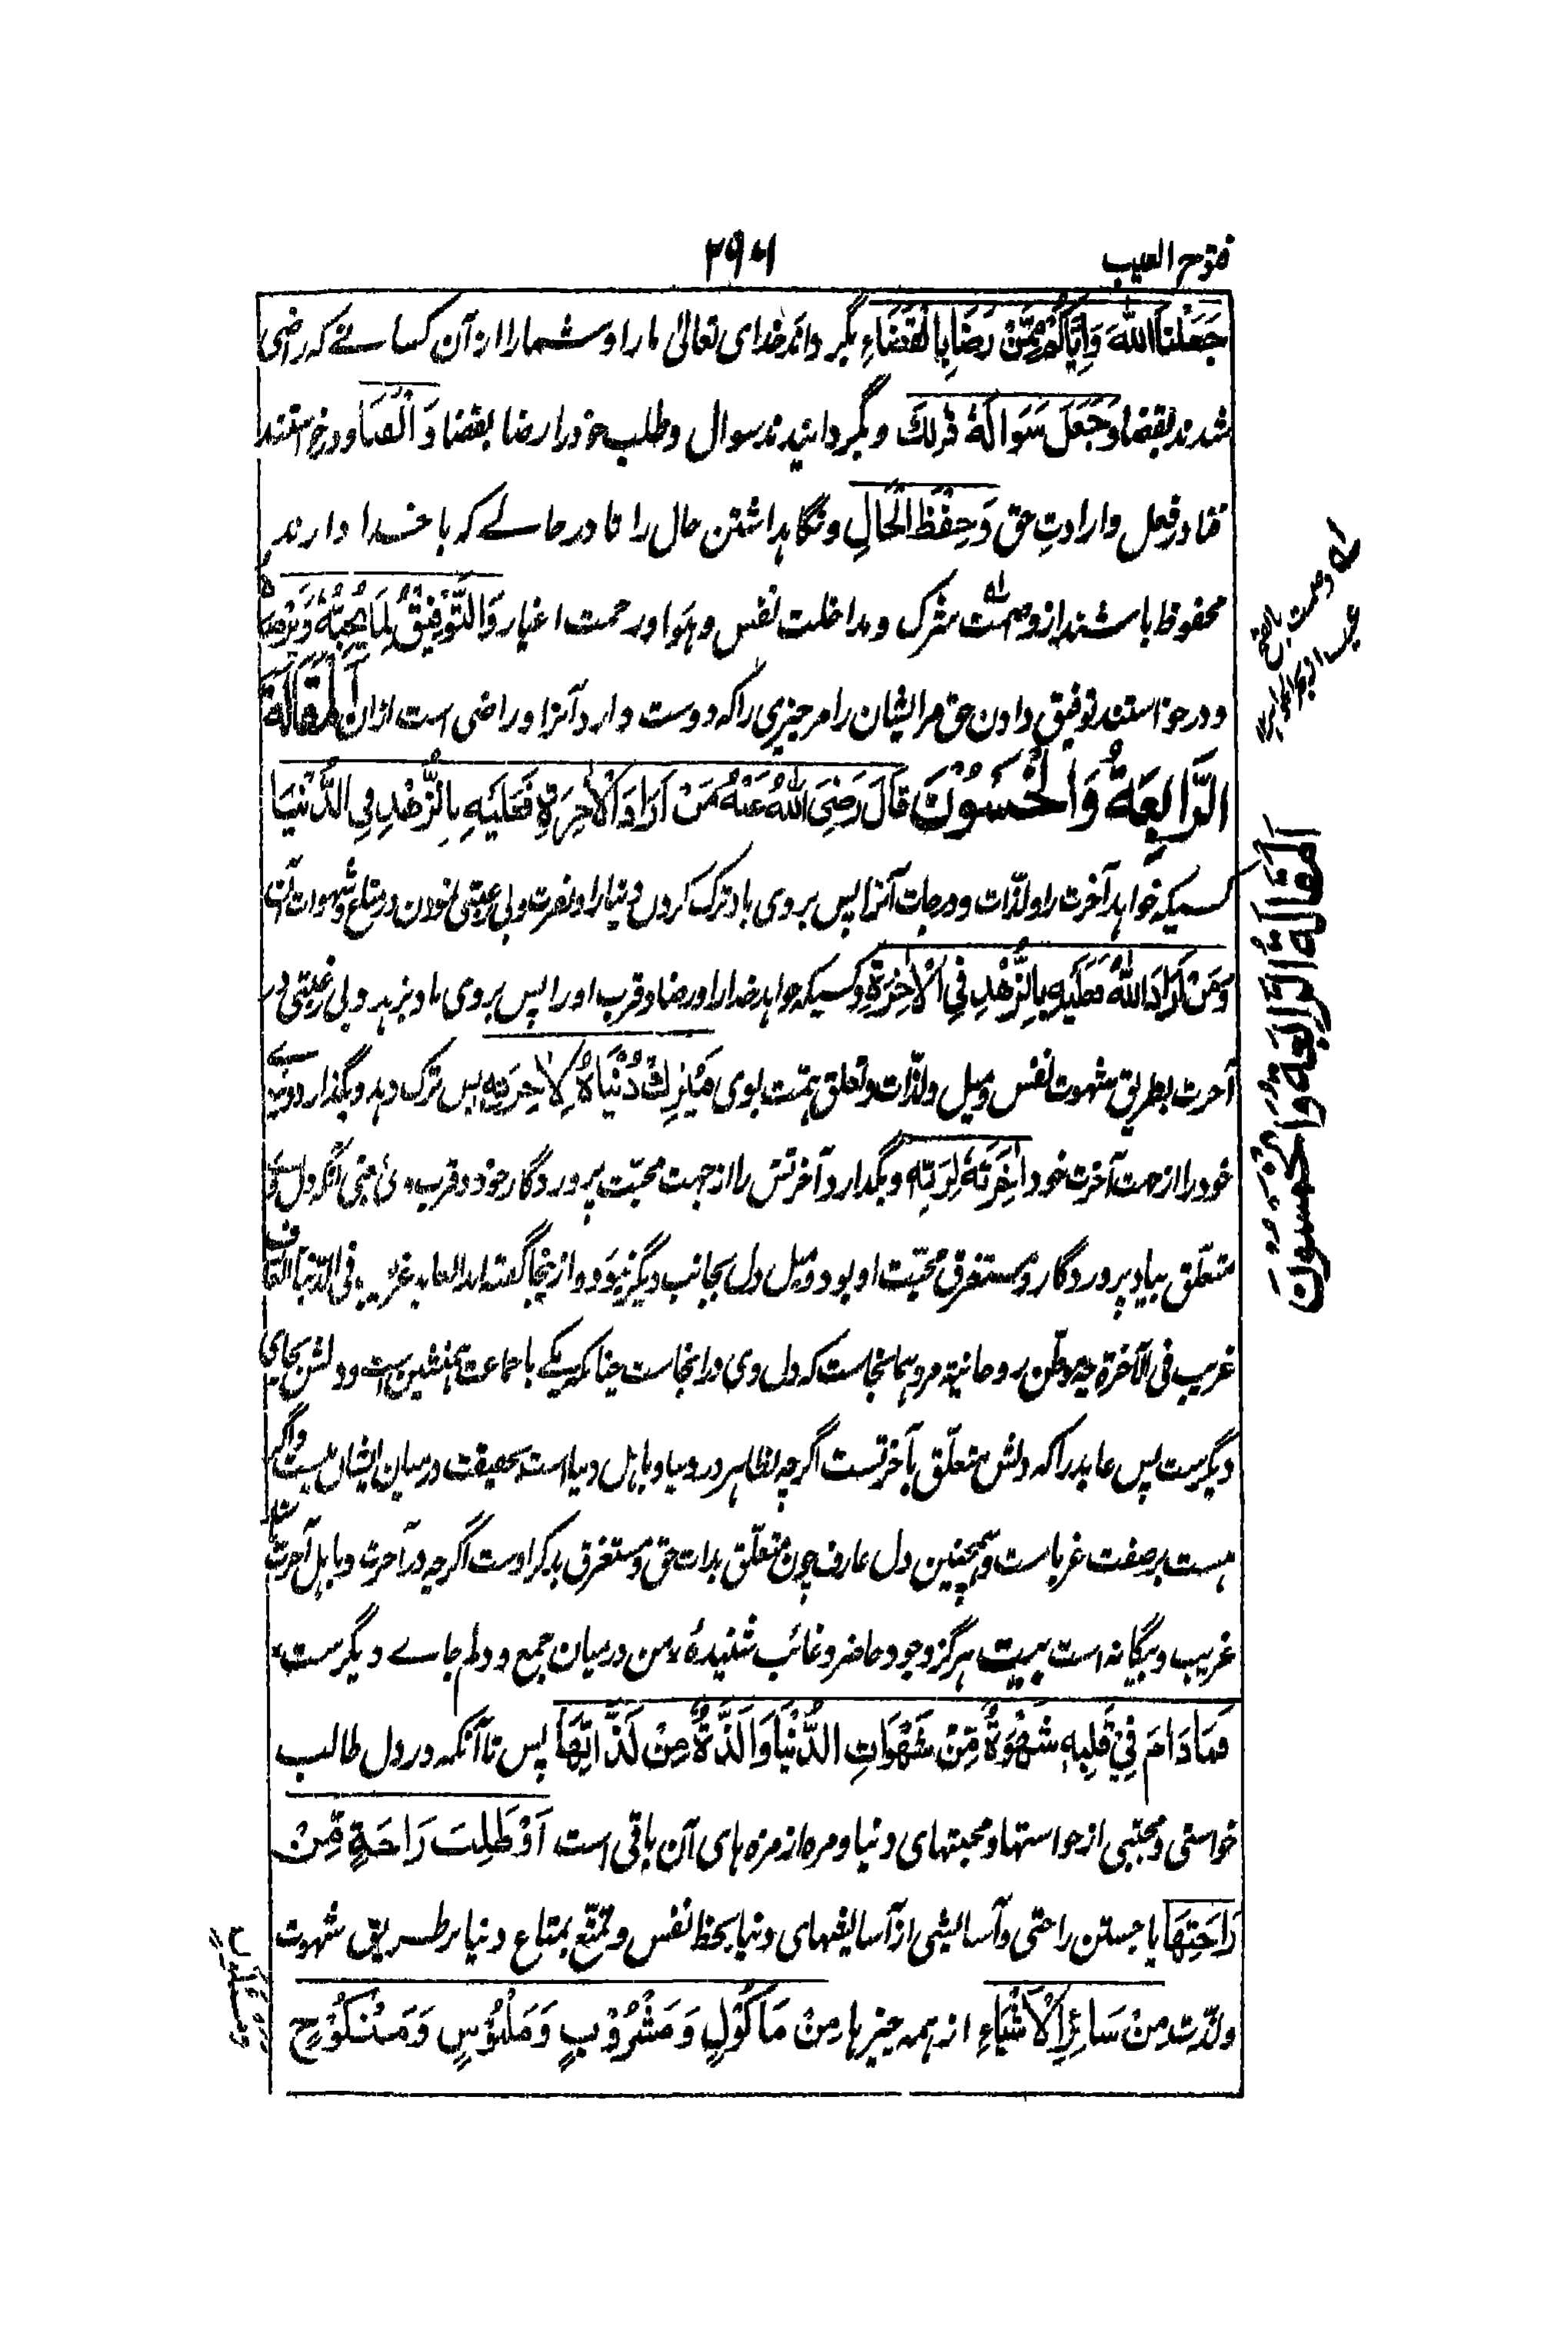 فتوح الغیب
جَعَلَنَا اللّٰهُ وَاِیَّاکُمْ مِمَّنْ رَضِیَ بِالْقَضَاءِ بگرداند خدای تعالیٰ ما را و شما را از آن کسانے که راضی
شدند بقضا وَجَعَلَ سَوَالَهٗ ذٰلِكَ و بگردانیدند سوال و طلب خود را رضا بقضا وَالْفَنَا و درخواستند
فنا در فعل و ارادتِ حق وَحِفْظَ الْحَالِ و نگاهداشتن حال را تا در حالے که با خدا دارند
محفوظ باشند از وصمت شرک و مداخلت نفس و هوا و زحمت اغیار وَالتَّوْفِیْقُ لِمَا یُحِبُّهٗ وَیَرْضَاهُ
و درخواستند توفیق دادن حق مر ایشان را مر چیزی را که دوست دارد آنرا و راضی است ازان اَلْمَقَالَةُ
الرَّابِعَةُ وَالْخَمْسُوْنَ قَالَ رَضِیَ اللّٰهُ عَنْهُ مَنْ اَرَادَ الْاٰخِرَةَ فَعَلَیْهِ بِالزُّهْدِ فِی الدُّنْیَا
کسیکه خواهد آخرت را و لذّات و درجات آنرا پس بر وی باد ترک کردن دنیا را و نفرت و بی رغبتی نمودن در متاع و شهوات آن
وَمَنْ اَرَادَ اللّٰهَ فَعَلَیْهِ بِالزُّهْدِ فِی الْاٰخِرَةِ و کسیکه خواهد خدا را و رضا و قرب او را پس بر وی باد بزهد و بی رغبتی در
آخرت بطریق شهوت نفس و میل و لذّات و تعلق همت بوی فَیَتْرُكُ دُنْیَاهُ لِاٰخِرَتِهٖ پس ترک دهد و بگذارد دنیای
خود را از جهت آخرت خود اٰخِرَتَهٗ لِرَبِّهٖ و بگذارد آخرتش را از جهت محبّت پروردگار خود و قرب وی یعنی آنکه دل
متعلّق بیاد پروردگار و مستغرق محبّت او بود و میل دل بجانب دیگر نبود و ازینجا گفته اند العابد غریب فی الدنیا والعارف
غریب فی الآخرة چه وطن روحانیه مرد همانجاست که دل وی در آنجاست چنانکه یکے با جماعت همنشین است و دلش بجای
دیگرست پس عابد را که دلش متعلّق بآخرتست اگرچه بظاهر در دنیا و باهل دنیا است بحقیقت درمیان ایشان نیست و اگر
هست بر صفت غرباست و همچنین دل عارف چون متعلّق بذات حق و مستغرق بذکر اوست اگرچه در آخرت و باهل آخرت
غریب و بیگانه است بیت هرگز وجود حاضر و غائب شنیدهٔ من درمیان جمع و دلم جاے دیگرست
فَمَا دَامَ فِیْ قَلْبِهٖ شَهْوَةٌ مِّنْ شَهَوَاتِ الدُّنْیَا وَلَذَّةٌ مِنْ لَذَّاتِهَا پس تا آنکه در دل طالب
خواستی و محبتی از خواستها و محبتهای دنیا و مزه از مزه های آن باقی است اَوْ طَلِبَ رَاحَةٍ مِّنْ
رَاحَتِهَا یا جستن راحتی و آسایشی از آسایشهای دنیا بحظ نفس و تمتّع بمتاع دنیا بر طریق شهوت
و لذّت مِنْ سَائِرِ الْاَشْیَاءِ از همه چیزها مِنْ مَاکُوْلٍ وَمَشْرُوْبٍ وَمَلْبُوْسٍ وَمَنْکُوْحٍ
اَلْمَقَالَةُ الرَّابِعَةُ وَالْخَمْسُوْنَ